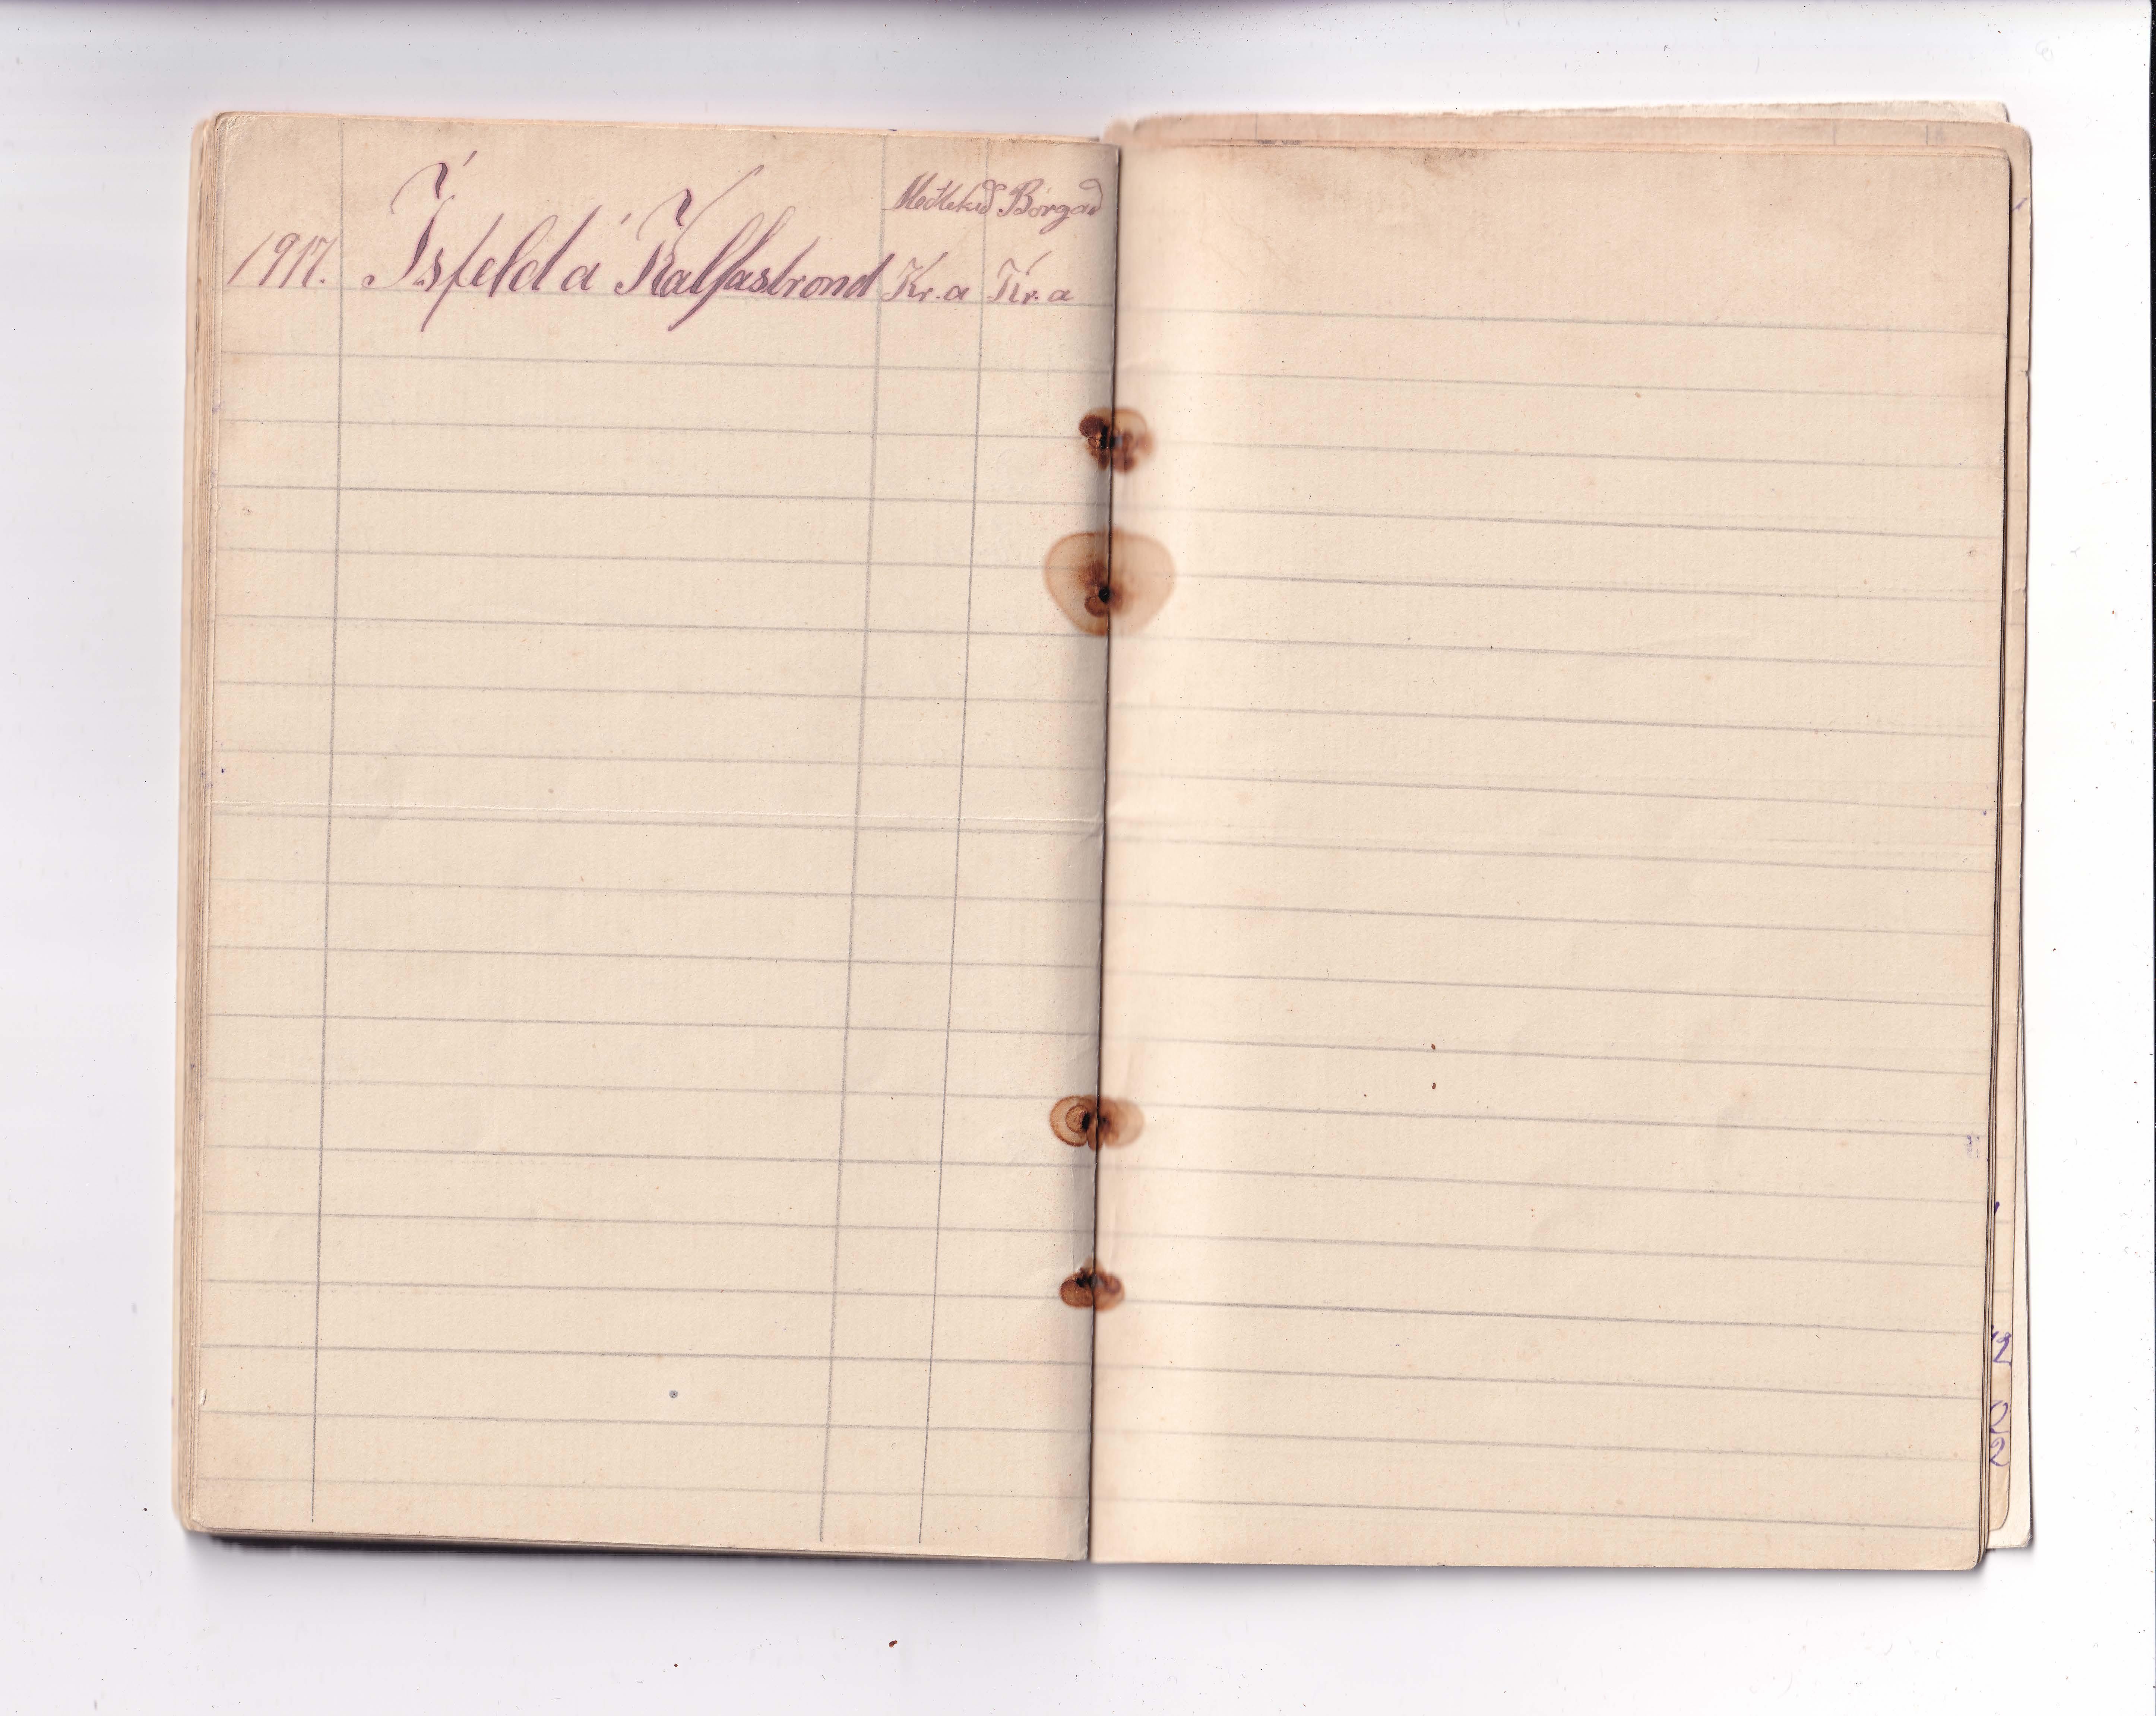 Meðtekið Borgað
1917. Ísfeld á Kalfastrond Kr. a Kr. a
2
2
2